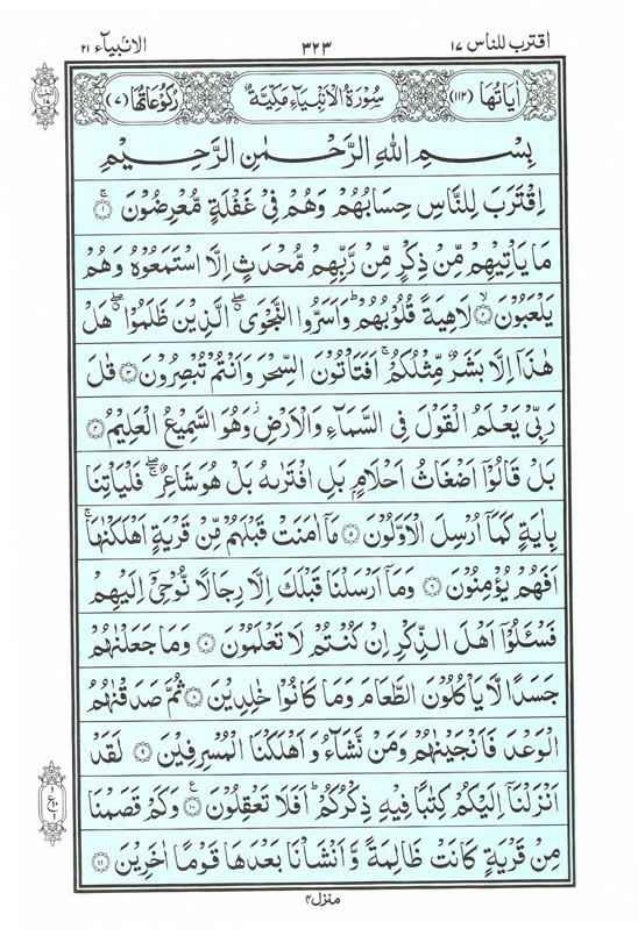 اقترب للناس ١٧ ٣٢٣ الانبيآء ٢١
اٰيَاتُهَا (١١٢) سُوْرَةُ الْاَنْۢبِيَآءِ مَكِّيَّةٌ رُكُوْعَاتُهَا (٧)
بِسْمِ اللهِ الرَّحْمٰنِ الرَّحِيْمِ
اِقْتَرَبَ لِلنَّاسِ حِسَابُهُمْ وَهُمْ فِيْ غَفْلَةٍ مُّعْرِضُوْنَ ۚ ١
مَا يَاْتِيْهِمْ مِّنْ ذِكْرٍ مِّنْ رَّبِّهِمْ مُّحْدَثٍ اِلَّا اسْتَمَعُوْهُ وَهُمْ
يَلْعَبُوْنَ ۙ ٢ لَاهِيَةً قُلُوْبُهُمْ ؕ وَاَسَرُّوا النَّجْوَى ۖ الَّذِيْنَ ظَلَمُوْا ۖ هَلْ
هٰذَآ اِلَّا بَشَرٌ مِّثْلُكُمْ ۚ اَفَتَاْتُوْنَ السِّحْرَ وَاَنْتُمْ تُبْصِرُوْنَ ٣ قٰلَ
رَبِّيْ يَعْلَمُ الْقَوْلَ فِي السَّمَآءِ وَالْاَرْضِ ؗ وَهُوَ السَّمِيْعُ الْعَلِيْمُ ٤
بَلْ قَالُوْٓا اَضْغَاثُ اَحْلَامٍۭ بَلِ افْتَرٰىهُ بَلْ هُوَ شَاعِرٌ ۖۚ فَلْيَاْتِنَا
بِاٰيَةٍ كَمَآ اُرْسِلَ الْاَوَّلُوْنَ ٥ مَآ اٰمَنَتْ قَبْلَهُمْ مِّنْ قَرْيَةٍ اَهْلَكْنٰهَا ۚ
اَفَهُمْ يُؤْمِنُوْنَ ٦ وَمَآ اَرْسَلْنَا قَبْلَكَ اِلَّا رِجَالًا نُّوْحِيْٓ اِلَيْهِمْ
فَسْـَٔلُوْٓا اَهْلَ الذِّكْرِ اِنْ كُنْتُمْ لَا تَعْلَمُوْنَ ٧ وَمَا جَعَلْنٰهُمْ
جَسَدًا لَّا يَاْكُلُوْنَ الطَّعَامَ وَمَا كَانُوْا خٰلِدِيْنَ ٨ ثُمَّ صَدَقْنٰهُمُ
الْوَعْدَ فَاَنْجَيْنٰهُمْ وَمَنْ نَّشَآءُ وَاَهْلَكْنَا الْمُسْرِفِيْنَ ٩ لَقَدْ
اَنْزَلْنَآ اِلَيْكُمْ كِتٰبًا فِيْهِ ذِكْرُكُمْ ؕ اَفَلَا تَعْقِلُوْنَ ١٠ ع وَكَمْ قَصَمْنَا
مِنْ قَرْيَةٍ كَانَتْ ظَالِمَةً وَّاَنْشَاْنَا بَعْدَهَا قَوْمًا اٰخَرِيْنَ ١١
منزل ٤